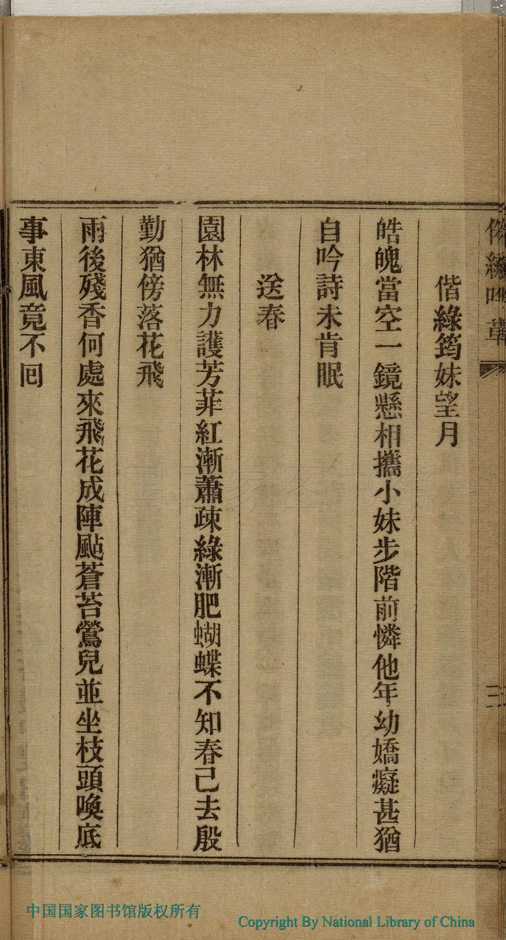 偕綠筠妹望月
皓魄當空一鏡懸相攜小妹步階前憐他年幼嬌癡甚猶
自吟詩未肯眠
送春
園林無力護芳菲紅漸蕭疎綠漸肥蝴蝶不知春已去殷
勤猶傍落花飛
雨後殘香何處來飛花成陣颭蒼苔鶯兒並坐枝頭喚底
事東風竟不回
中国国家图书馆版权所有
Copyright By National Library of China